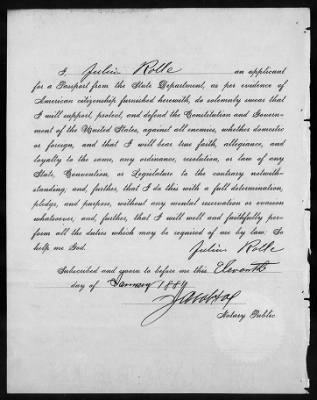 I, Julius Rolle an applicant
for a Passport from the State Department, as per evidence of
American citizenship furnished herewith, do solemnly swear that
I will support, protect, and defend the Constitution and Govern-
ment of the United States, against all enemies, whether domestic
or foreign, and that I will bear true faith, allegiance, and
loyalty to the same, any ordinance, resolution, or law of any
State, Convention, or Legislature to the contrary notwith-
standing, and, further, that I do this with a full determination,
pledge, and purpose, without any mental reservation or evasion
whatsoever, and, further, that I will well and faithfully per-
form all the duties which may be required of me by law. So
help me God.
Julius Rolle
Subscribed and sworn to before me this Eleventh
day of January 1889
Notary Public